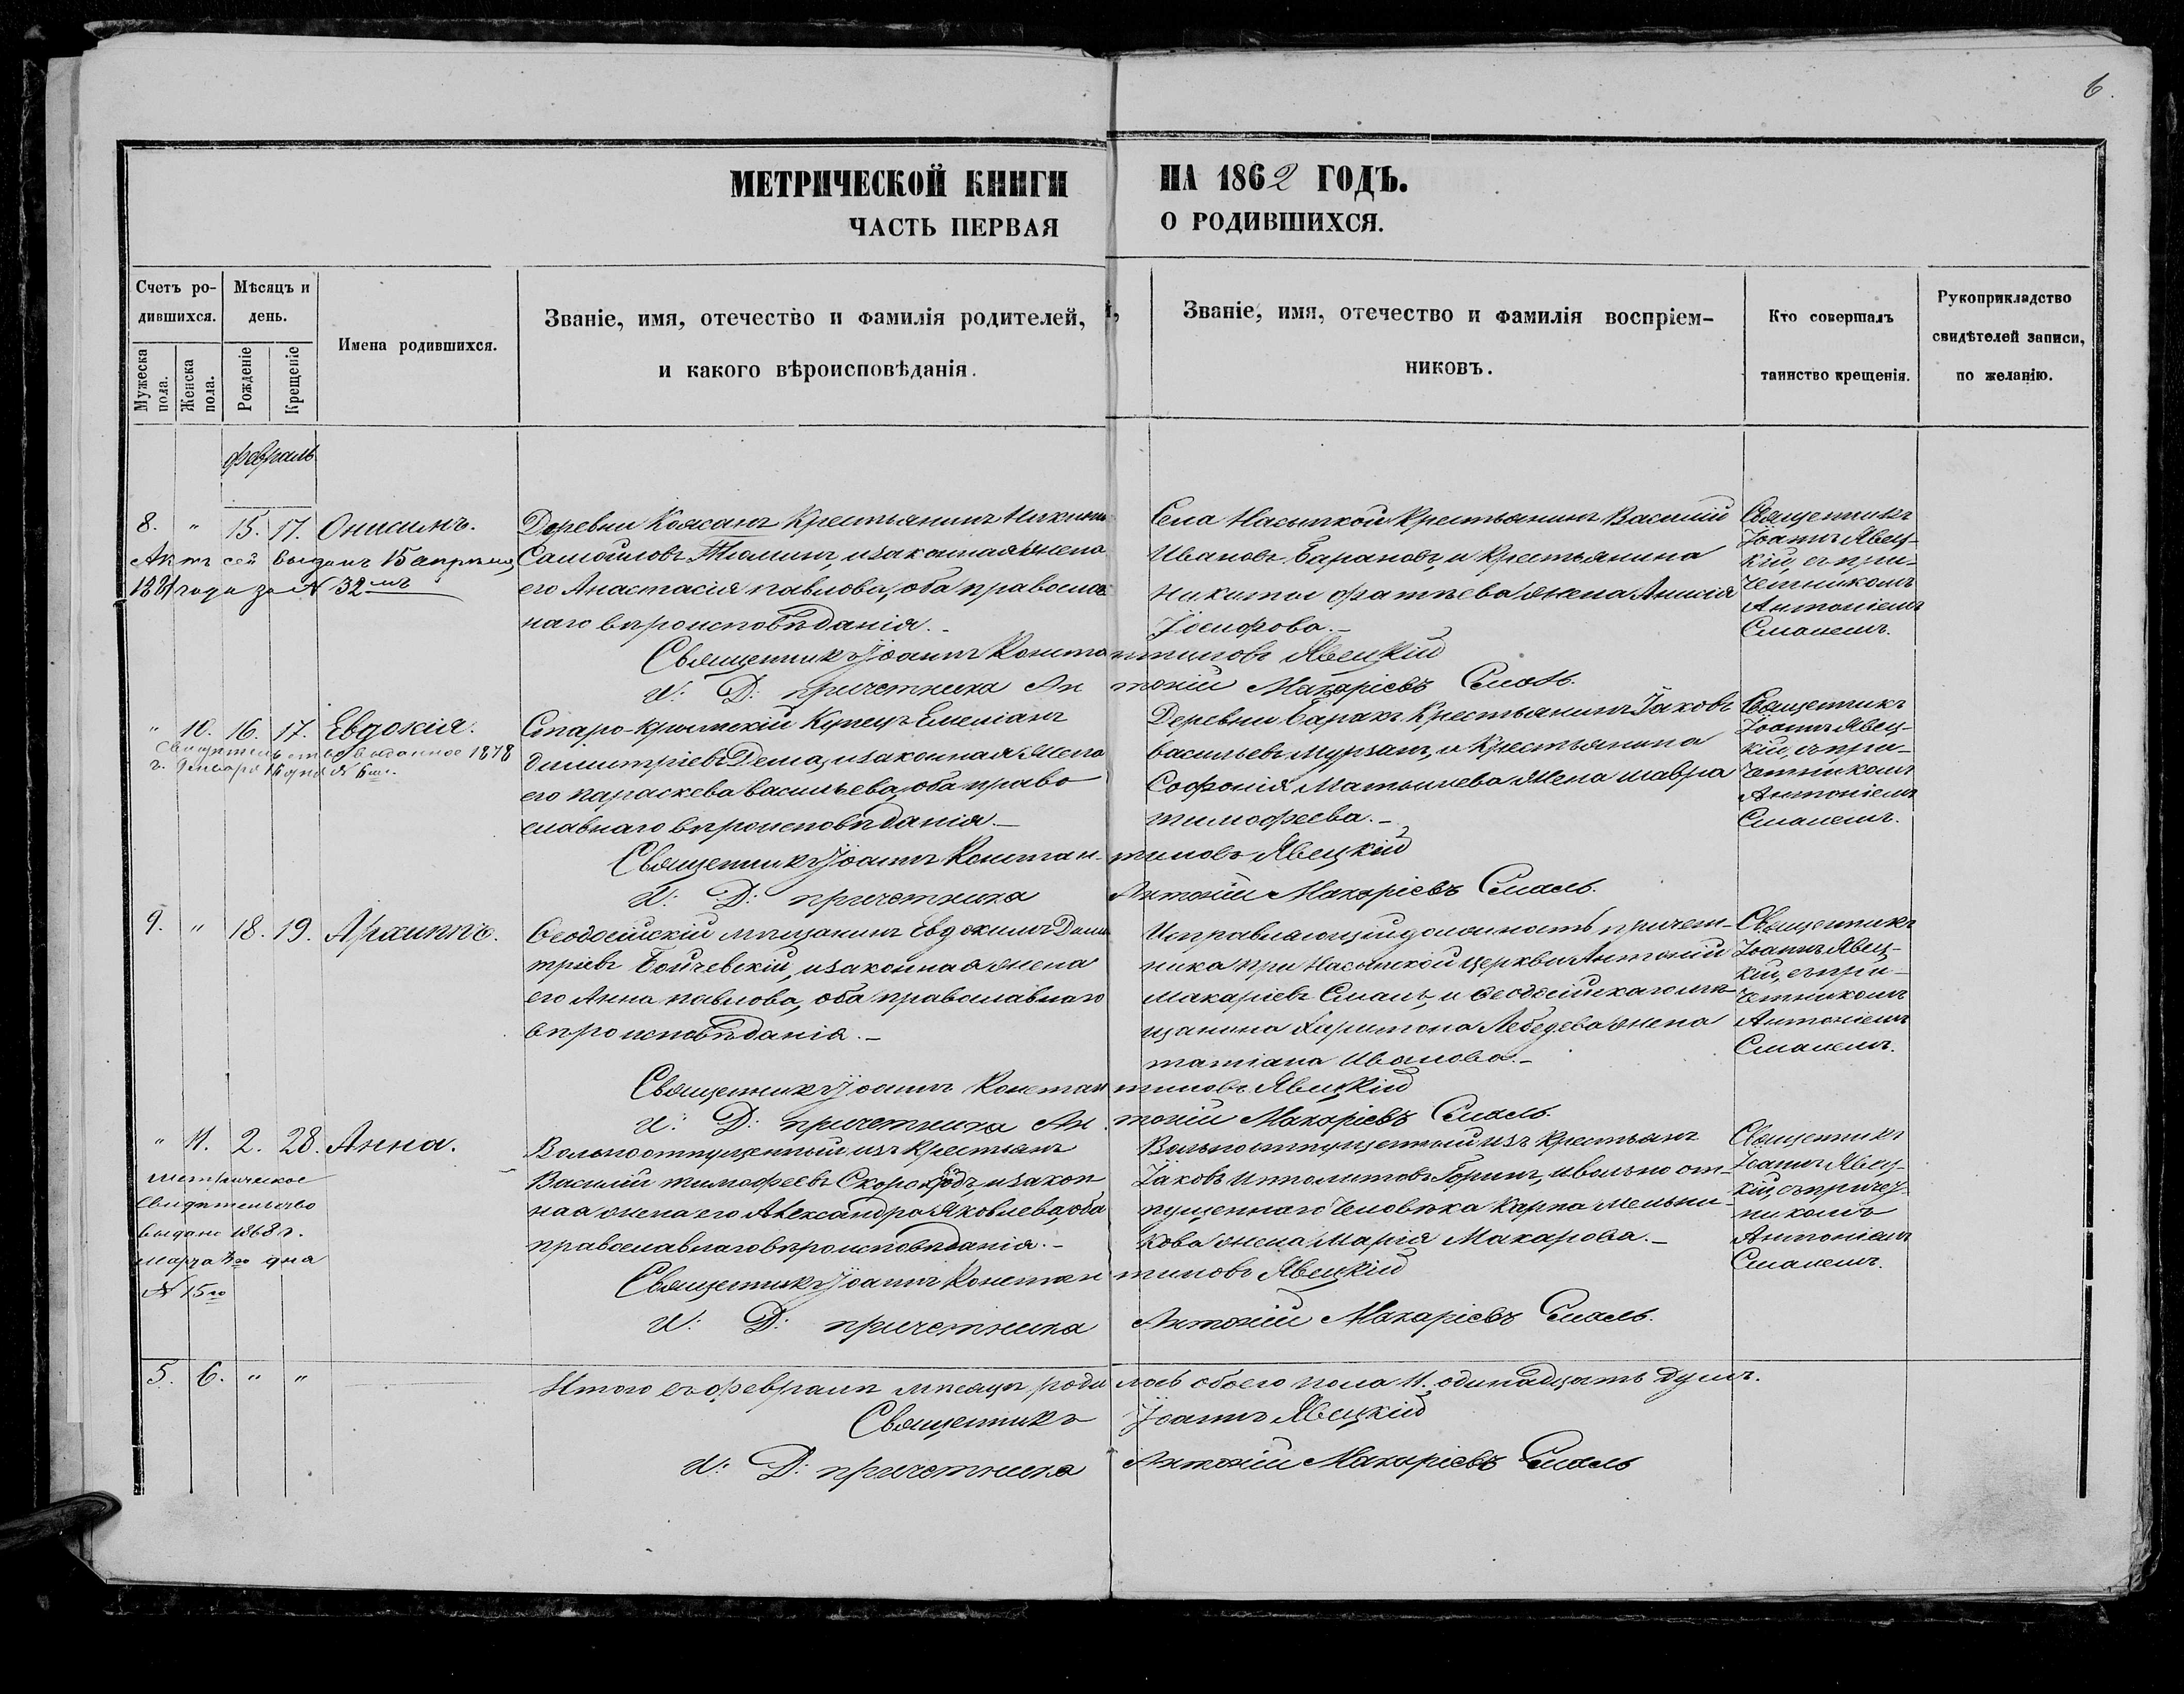 6.
МЕТРИЧЕСКОЙ КНИГИ НА 1862 ГОДЪ.
ЧАСТЬ ПЕРВАЯ О РОДИВШИХСЯ.
Счетъ родившихся.
Мужеска пола.
Женска пола.
Мѣсяцъ и день.
Рожденіе
Крещеніе
Имена родившихся.
Званіе, имя, отечество и фамилія родителей,
и какого вѣроисповѣданія.
Званіе, имя, отечество и фамилія воспріем-
никовъ.
Кто совершалъ
таинство крещенія.
Рукоприкладство
свидѣтелей записи,
по желанію.
февраль
8. " 15. 17. Онисимъ.
Актъ сей выданъ 15 апрѣля,
года за № 32
Деревни Коясанъ Крестьянинъ
Самойловъ Тюминъ, и законная жена
его Анастасія павлова, оба православ
наго вѣроисповѣданія.
Села Насыпкой Крестьянинъ Василій
Ивановъ Барановъ, и Крестьянина
Никиты жена
Іосифова.
Священникъ
Іоаннъ Явец-
кій, съ при-
четникомъ
Антоніемъ
Смалемъ.
Священникъ Іоаннъ Константиновъ Явецкій
И: Д: причетника Антоній Макаріевъ Смаль.
" 10. 16. 17. Евдокія.
Свидѣтельство выданное 1878
г. Января № 6
Старо-Крымскій Купецъ Емеліанъ
димитріевъ Дема, и законная жена
его параскева васильева, оба право
славнаго вѣроисповѣданія.
Деревни Баракъ Крестьянинъ Іаковъ
васильевъ Мурзанъ, и Крестьянина
Софонія жена мавра
тимофеева.
Священникъ
Іоаннъ Явец-
кій, съ при-
четникомъ
Антоніемъ
Смалемъ.
Священникъ Іоаннъ Константиновъ Явецкій
И: Д: причетника Антоній Макаріевъ Смаль.
9. " 18. 19. Архиппъ.
Ѳеодосійскій мѣщанинъ Евдокимъ Дими
тріевъ Бойчевскій, и законная жена
его Анна павлова, оба православнаго
вѣроисповѣданія.
Исправляющій должность причет-
ника при Насыпкой церкви Антоній
Макаріевъ Смаль, и Ѳеодосійскаго мѣ-
щанина Харитона Лебедева жена
татіана Иванова.
Священникъ
Іоаннъ Явец-
кій, съ при-
четникомъ
Антоніемъ
Смалемъ.
Священникъ Іоаннъ Константиновъ Явецкій
И: Д: причетника Антоній Макаріевъ Смаль.
" 11. 2. 28. Анна.
метрическое
Свидѣтельство
выдано 1868 г.
марта дня
№ 15
Вольноотпущенный изъ Крестьянъ
Василій тимофеевъ Скороходъ, и закон
ная жена его Александра Яковлева, оба
православнаго вѣроисповѣданія.
Вольноотпущенный изъ Крестьянъ
Іаковъ Ипполитовъ Горинъ, и вольно от-
пущеннаго человѣка Карпа Мельни-
кова жена Марія Макарова.
Священникъ
Іоаннъ Явец-
кій, съ причет-
никомъ
Антоніемъ
Смалемъ.
Священникъ Іоаннъ Константиновъ Явецкій
И: Д: причетника Антоній Макаріевъ Смаль.
5. 6. " "
Итого въ февралѣ мѣсяцѣ родилось обоего пола 11. одинадцать душъ.
Священникъ Іоаннъ Явецкій
И: Д: причетника Антоній Макаріевъ Смаль